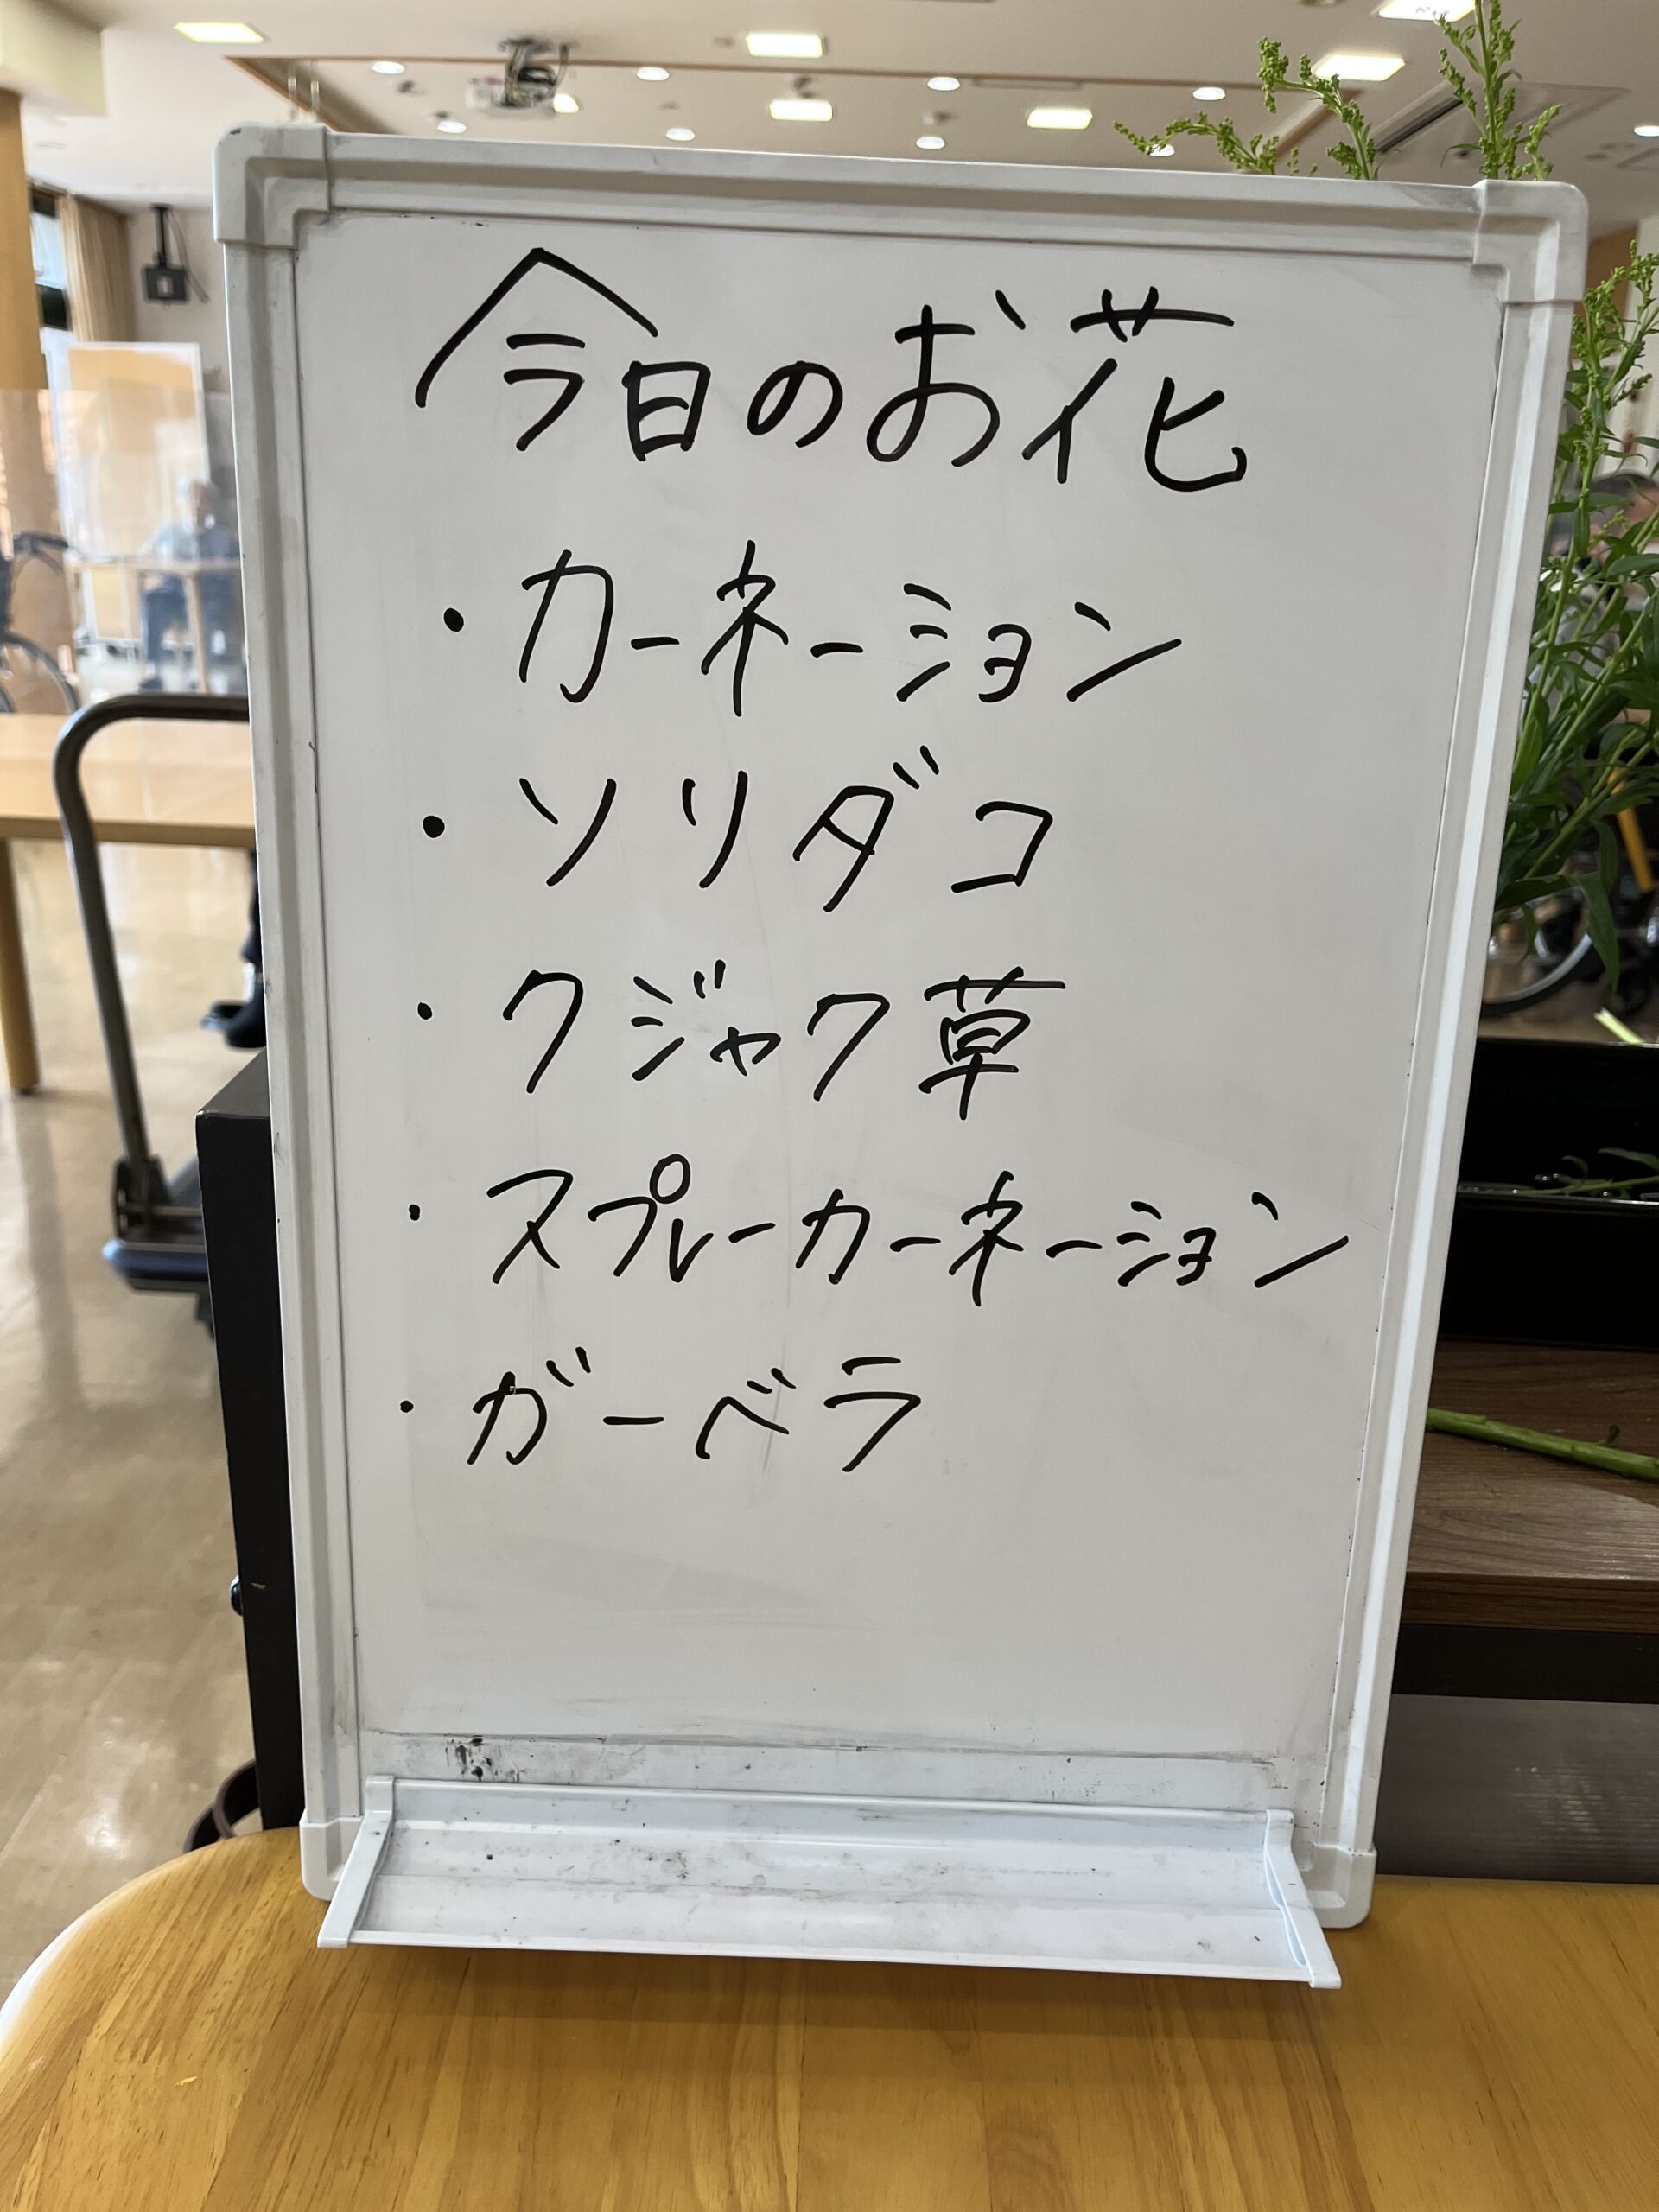 今日のお花
・カーネーション
・ソリダコ
・クジャク草
・スプレーカーネーション
・ガーベラ